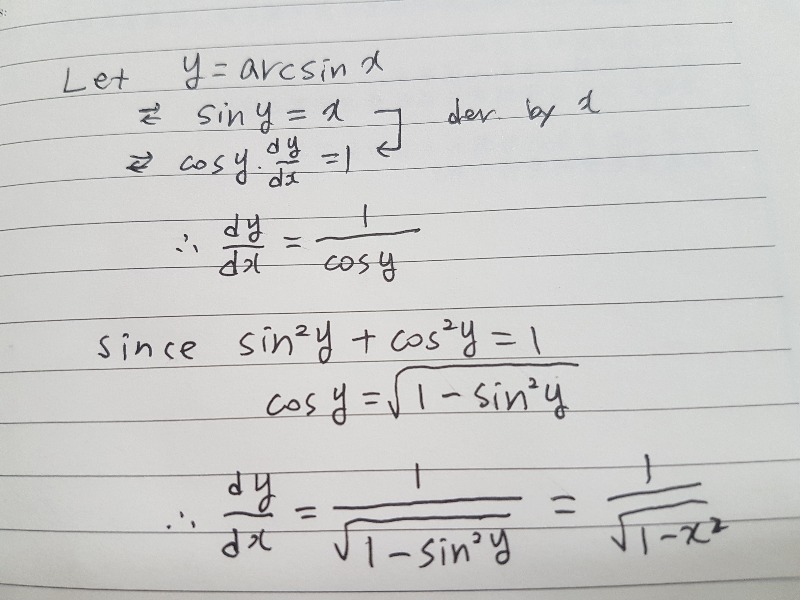 Let y = arcsin x
⇄ sin y = x der. by x
⇄ cos y · dy/dx = 1
∴ dy/dx = 1/cos y
since sin²y + cos²y = 1
cos y = √(1 - sin²y)
∴ dy/dx = 1/√(1 - sin²y) = 1/√(1 - x²)